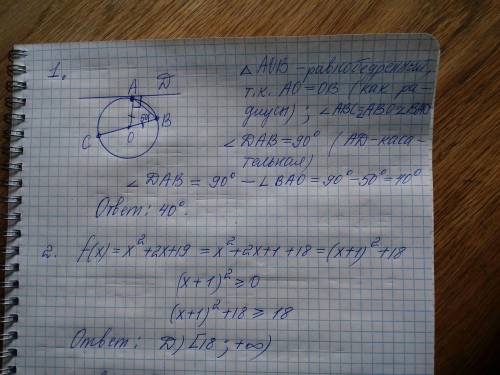 1.
A D
50°
B
C
O
△ AOB - равнобедренный,
т.к. AO = OB (как ра-
диусы) ; ∠ABC = ∠ABO = ∠BAO
∠ DAB = 90° (AD - каса-
тельная)
∠ DAB = 90° - ∠BAO = 90° - 50° = 40°
Ответ: 40°.
2. f(x) = x² + 2x + 19 = x² + 2x + 1 + 18 = (x+1)² + 18
(x+1)² ⩾ 0
(x+1)² + 18 ⩾ 18
Ответ: D) [18 ; +∞)